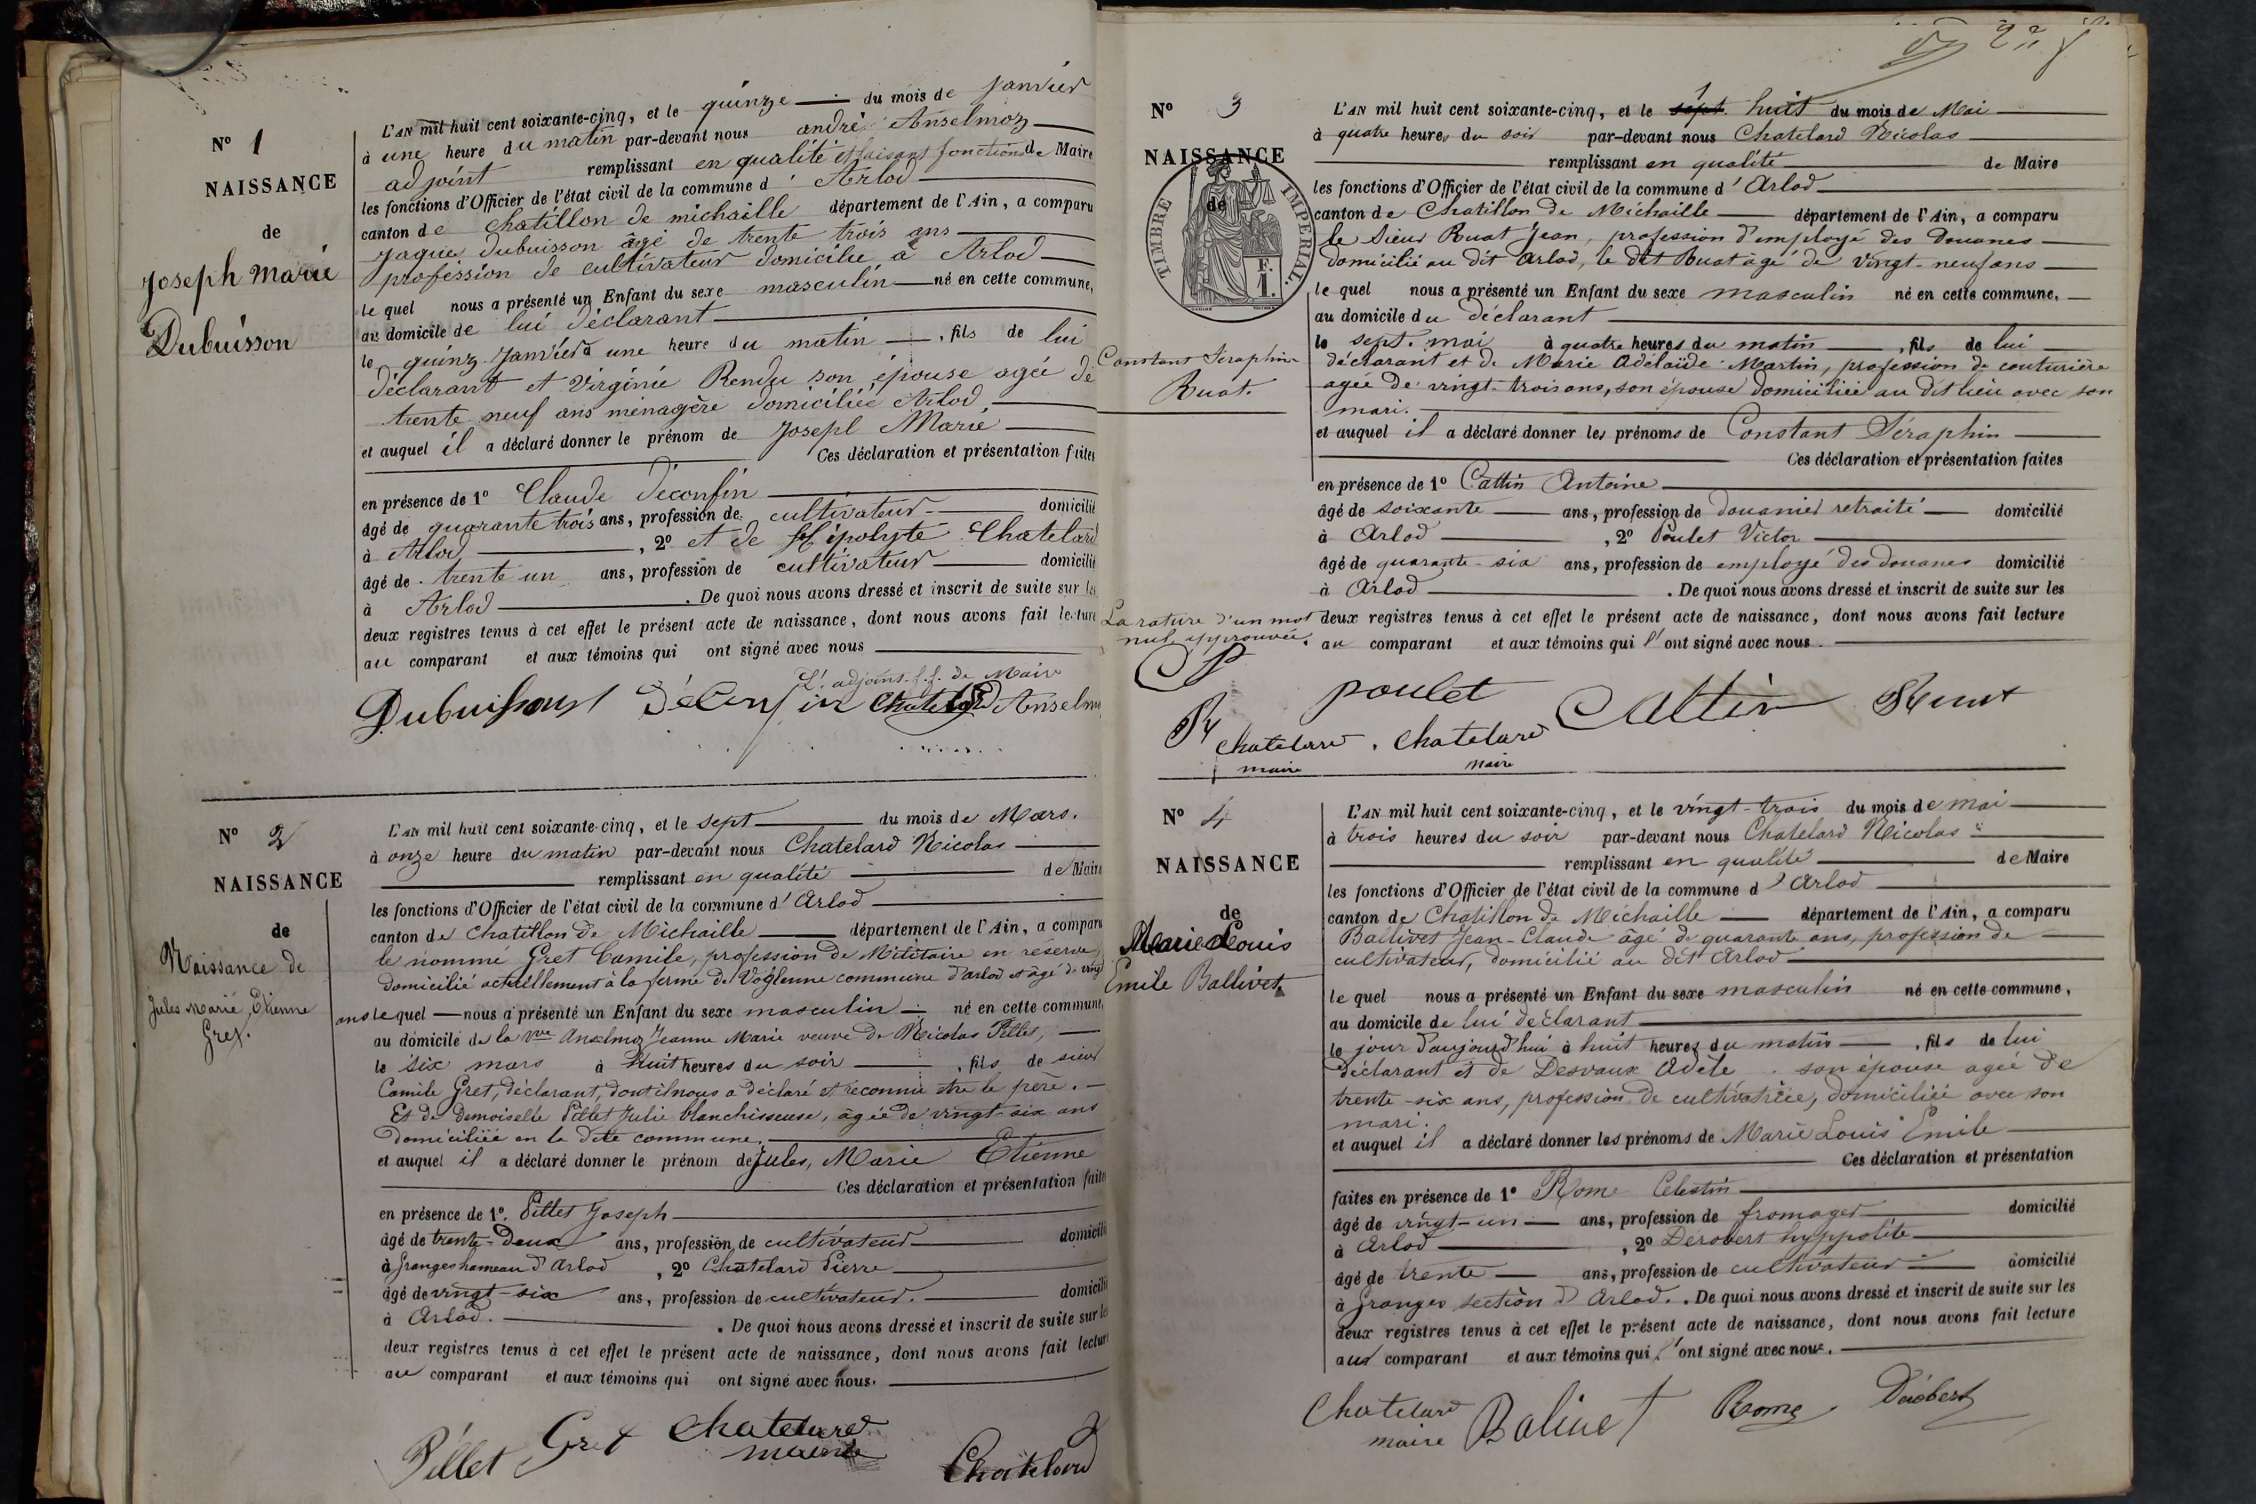 N° 1
NAISSANCE
de
Joseph Marie
Dubuisson
L'AN mil huit cent soixante-cinq, et le quinze du mois de Janvier
à une heure du matin par-devant nous andré Anselmoz
adjoint remplissant en qualité et faisant fonctions de Maire
les fonctions d'Officier de l'état civil de la commune d' Arlod
canton de Chatillon de michaille département de l'Ain, a comparu
Jaque Dubuisson âgé de trente trois ans
profession de cultivateur domicilie a Arlod
le quel nous a présenté un Enfant du sexe masculin né en cette commune,
au domicile de lui déclarant
le quinz Janvier à une heure du matin, fils de lui
déclarant et Virginie Rendu son épouse agée de
trente neuf ans ménagère domiciliée Arlod
et auquel il a déclaré donner le prénom de Josepl Marie
Ces déclaration et présentation faites
en présence de 1° Claude Déconfin
âgé de quarante trois ans, profession de cultivateur domicilié
à Arlod, 2° et de Hépolyte Chatelard
âgé de trente un ans, profession de cultivateur domicilié
à Arlod. De quoi nous avons dressé et inscrit de suite sur les
deux registres tenus à cet effet le présent acte de naissance, dont nous avons fait lecture
au comparant et aux témoins qui ont signé avec nous
L'adjoint f.f. de Maire
Dubuisson Déconfin Chatelard Anselmoz
N° 2
NAISSANCE
de
Naissance de
Jules Marie Etienne
Gret.
L'AN mil huit cent soixante-cinq, et le sept du mois de Mars.
à onze heure du matin par-devant nous Chatelard Nicolas
remplissant en qualité de Maire
les fonctions d'Officier de l'état civil de la commune d' Arlod
canton de Chatillon de Michaille département de l'Ain, a comparu
le nommé Gret Camile, profession de Militaire en réserve,
domicilié actuellement à la ferme de Voglenne commune d'arlod et âgé de vingt
ans le quel nous a présenté un Enfant du sexe masculin né en cette commune,
au domicile de la Vve Anselmoz Jeanne Marie veuve de Nicolas Pillet,
le six mars à huit heures du soir, fils de sieur
Camile Gret, déclarant, dont il nous a déclaré et reconnu être le père.
Et de Demoiselle Pillet Julie blanchisseuse, âgée de vingt-six ans
domiciliée en la dite commune,
et auquel il a déclaré donner le prénom de Jules, Marie Etienne
Ces déclaration et présentation faites
en présence de 1°. Pillet Joseph
âgé de trente-deux ans, profession de cultivateur domicilié
à Granges hameau d'Arlod, 2° Chatelard Pierre
âgé de vingt-six ans, profession de cultivateur. domicilié
à Arlod. De quoi nous avons dressé et inscrit de suite sur les
deux registres tenus à cet effet le présent acte de naissance, dont nous avons fait lecture
au comparant et aux témoins qui ont signé avec nous.
Pillet Gret Chatelard
maire
Chatelard
N° 3
NAISSANCE
de
TIMBRE IMPERIAL.
F.
1.
Constant Séraphin
Ruat.
L'AN mil huit cent soixante-cinq, et le sept huit du mois de Mai
à quatre heures du soir par-devant nous Chatelard Nicolas
remplissant en qualité de Maire
les fonctions d'Officier de l'état civil de la commune d' Arlod
canton de Chatillon de Michaille département de l'Ain, a comparu
le Sieur Ruat Jean, profession d'employé des Douanes
domicilié au dit Arlod, le dit Ruat âgé de vingt-neuf ans
le quel nous a présenté un Enfant du sexe masculin né en cette commune,
au domicile du déclarant
le sept. mai à quatre heures du matin, fils de lui
déclarant et de Marie Adélaïde Martin, profession de couturière
agée de vingt-trois ans, son épouse domiciliée au dit lieu avec son
mari.
et auquel il a déclaré donner les prénoms de Constant Séraphin
Ces déclaration et présentation faites
en présence de 1° Cattin Antoine
âgé de soixante ans, profession de douanier retraité domicilié
à Arlod, 2° Poulet Victor
âgé de quarante-six ans, profession de employé des douanes domicilié
à Arlod. De quoi nous avons dressé et inscrit de suite sur les
La rature d'un mot
nul approuvée.
deux registres tenus à cet effet le présent acte de naissance, dont nous avons fait lecture
au comparant et aux témoins qui l'ont signé avec nous.
CP
poulet Cattin Ruat
Chatelard. Chatelard
maire Maire
N° 4
NAISSANCE
de
Marie Louis
Emile Ballivet
L'AN mil huit cent soixante-cinq, et le vingt-trois du mois de mai
à trois heures du soir par-devant nous Chatelard Nicolas
remplissant en qualité de Maire
les fonctions d'Officier de l'état civil de la commune d' Arlod
canton de Chatillon de Michaille département de l'Ain, a comparu
Ballivet Jean-Claude âgé de quarante ans, profession de
cultivateur, domicilié au dit Arlod
le quel nous a présenté un Enfant du sexe masculin né en cette commune,
au domicile de lui déclarant
le jour d'aujourd'hui à huit heures du matin, fils de lui
déclarant et de Desvaux Adèle son épouse agée de
trente-six ans, profession de cultivatrice, domiciliée avec son
mari.
et auquel il a déclaré donner les prénoms de Marie Louis Emile
Ces déclaration et présentation
faites en présence de 1° Rome Celestin
âgé de vingt-un ans, profession de fromager domicilié
à Arlod, 2° Dérobert hyppolite
âgé de trente ans, profession de cultivateur domicilié
à Granges section d'Arlod. De quoi nous avons dressé et inscrit de suite sur les
deux registres tenus à cet effet le présent acte de naissance, dont nous avons fait lecture
aux comparant et aux témoins qui l'ont signé avec nous.
Chatelard Balivet Rome Dérobert
maire